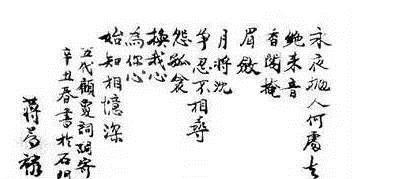 永夜抛人何處去
絕來音
香閣掩
眉斂
月將沈
争忍不相尋
怨孤衾
換我心
為你心
始知相憶深
五代顧夐詞調寄
辛丑春書於石
蔣